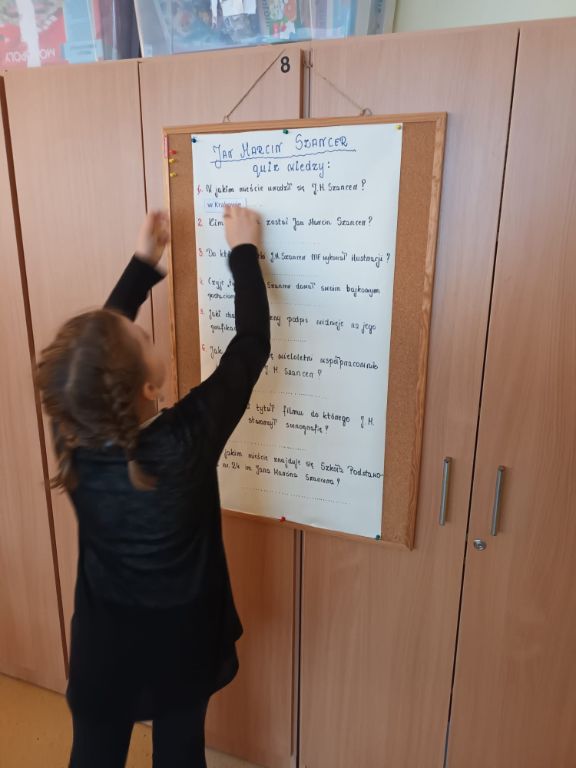 MONOPOLY
8
JAN MARCIN SZANCER
quiz wiedzy:
1. W jakim mieście urodził się J.M. Szancer?
w Krakowie
2. Kim został Jan Marcin Szancer?
3. Do J.M. Szancer NIE wykonał ilustracji?
4. Czyje Szancer dawał swoim bajkowym
postaciom
5. Jaki podpis widnieje na jego
grafikach
6. wieloletni współpracownik
J. M. SZANCER?
tytuł filmu do którego J.M.
stworzył scenografię?
jakim mieście znajduje się Szkoła Podstawo-
nr 24 im. Jana Marcina Szancera?